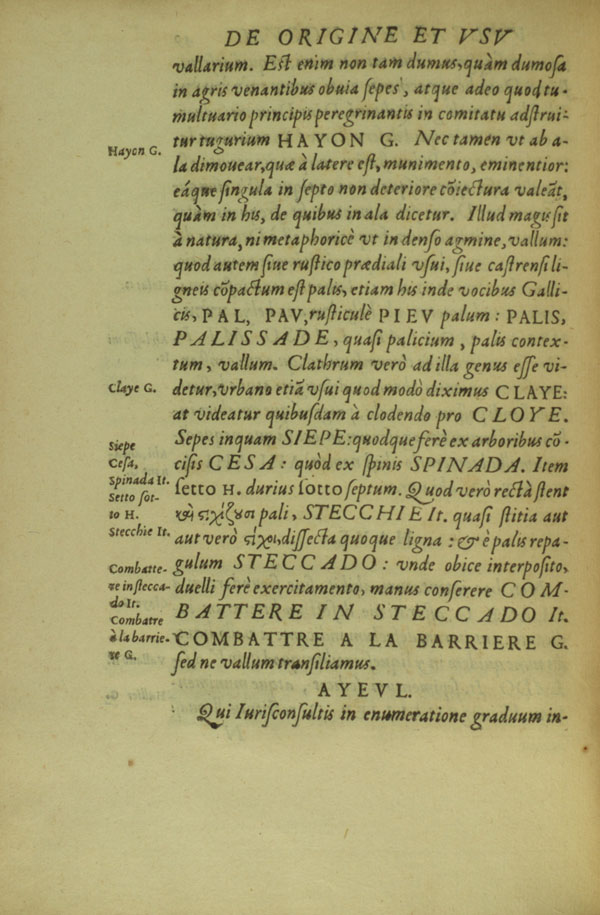 DE ORIGINE ET VSV
vallarium. Est enim non tam dumus, quàm dumosa
in agris venantibus obuia sepes, atque adeo quod tu-
multuario principis peregrinantis in comitatu adstrui-
tur tugurium HAYON G. Nec tamen vt ab a-
Hayon G.
la dimouear, quæ à latere est, munimento, eminentior:
eáque singula in septo non deteriore cõiectura valeãt,
quàm in his, de quibus in ala dicetur. Illud magis sit
à natura, ni metaphoricè vt in denso agmine, vallum:
quod autem siue rustico prædiali vsui, siue castrensi li-
gneis cõpactum est palis, etiam his inde vocibus Galli-
cis, PAL, PAV, rusticulè PIEV palum: PALIS,
PALISSADE, quasi palicium, palis contex-
tum, vallum. Clathrum verò ad illa genus esse vi-
detur, vrbano etiã vsui quod modò diximus CLAYE:
Claye G.
at videatur quibusdam à clodendo pro CLOYE.
Sepes inquam SIEPE: quodque ferè ex arboribus cõ-
cisis CESA: quòd ex spinis SPINADA. Item
setto H. durius sotto septum. Quod verò rectà stent
pali, STECCHIE It. quasi stitia aut
aut verò dissecta quoque ligna: & è palis repa-
gulum STECCADO: vnde obice interposito,
duelli ferè exercitamento, manus conserere COM-
BATTERE IN STECCADO It.
COMBATTRE A LA BARRIERE G.
sed ne vallum transiliamus.
Siepe
Cesa,
Spinada It.
Setto sot-
to H.
Stecchie It.
Combatte-
re in stecca-
do It.
Combatre
à la barrie-
re G.
AYEVL.
Qui Iurisconsultis in enumeratione graduum in-